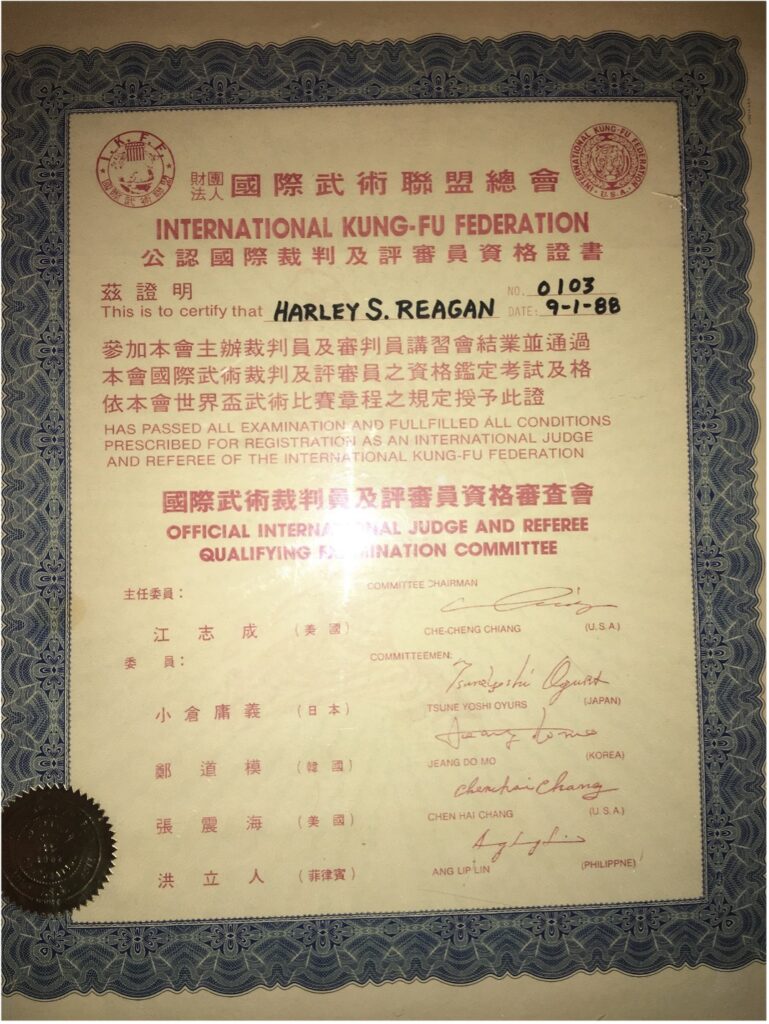 I.K.F.F.
國際武術聯盟
INTERNATIONAL KUNG-FU FEDERATION
U.S.A.
財團法人 國際武術聯盟總會
INTERNATIONAL KUNG-FU FEDERATION
公認國際裁判及評審員資格證書
茲證明 NO. 0103
This is to certify that HARLEY S. REAGAN DATE: 9-1-88
參加本會主辦裁判員及審判員講習會結業並通過
本會國際武術裁判及評審員之資格鑑定考試及格
依本會世界盃武術比賽章程之規定授予此證
HAS PASSED ALL EXAMINATION AND FULLFILLED ALL CONDITIONS
PRESCRIBED FOR REGISTRATION AS AN INTERNATIONAL JUDGE
AND REFEREE OF THE INTERNATIONAL KUNG-FU FEDERATION
國際武術裁判員及評審員資格審查會
OFFICIAL INTERNATIONAL JUDGE AND REFEREE
QUALIFYING EXAMINATION COMMITTEE
主任委員： COMMITTEE CHAIRMAN
江志成 (美國) CHE-CHENG CHIANG (U.S.A.)
委員： COMMITTEEMEN:
小倉庸義 (日本) TSUNE YOSHI OYURS (JAPAN)
鄭道模 (韓國) JEANG DO MO (KOREA)
chenhai chang
張震海 (美國) CHEN HAI CHANG (U.S.A.)
洪立人 (菲律賓) ANG LIP LIN (PHILIPPNE)